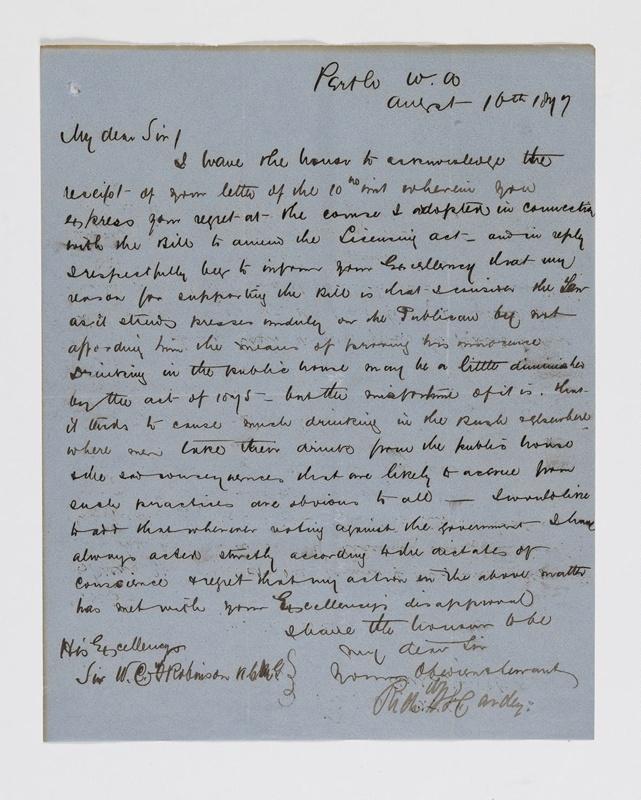 Perth W. A
August 16th 1877
My dear Sir/
I have the honor to acknowledge the
receipt of your letter of the 10th inst wherein you
express your regret at the course I adopted in connection
with the Bill to amend the Licensing act - and in reply
I respectfully beg to inform your Excellency that my
reason for supporting the Bill is that I consider the Law
as it stands presses unduly on the Publican by not
affording him the means of proving his innocence
Drinking in the public house may be a little diminished
by the act of 1875 - but the misfortune of it is. that
it tends to cause much drinking in the Bush & elsewhere
where men take their drinks from the public house
& the sad consequences that are likely to accrue from
such practices are obvious to all — I would like
to add that whenever voting against the government I have
always acted strictly according to the dictates of
conscience & regret that my action in the above matter
has met with your Excellency's disapproval
I have the honour to be
My dear Sir
Your obedient servant
His Excellency
Sir W. C. F Robinson K C M G